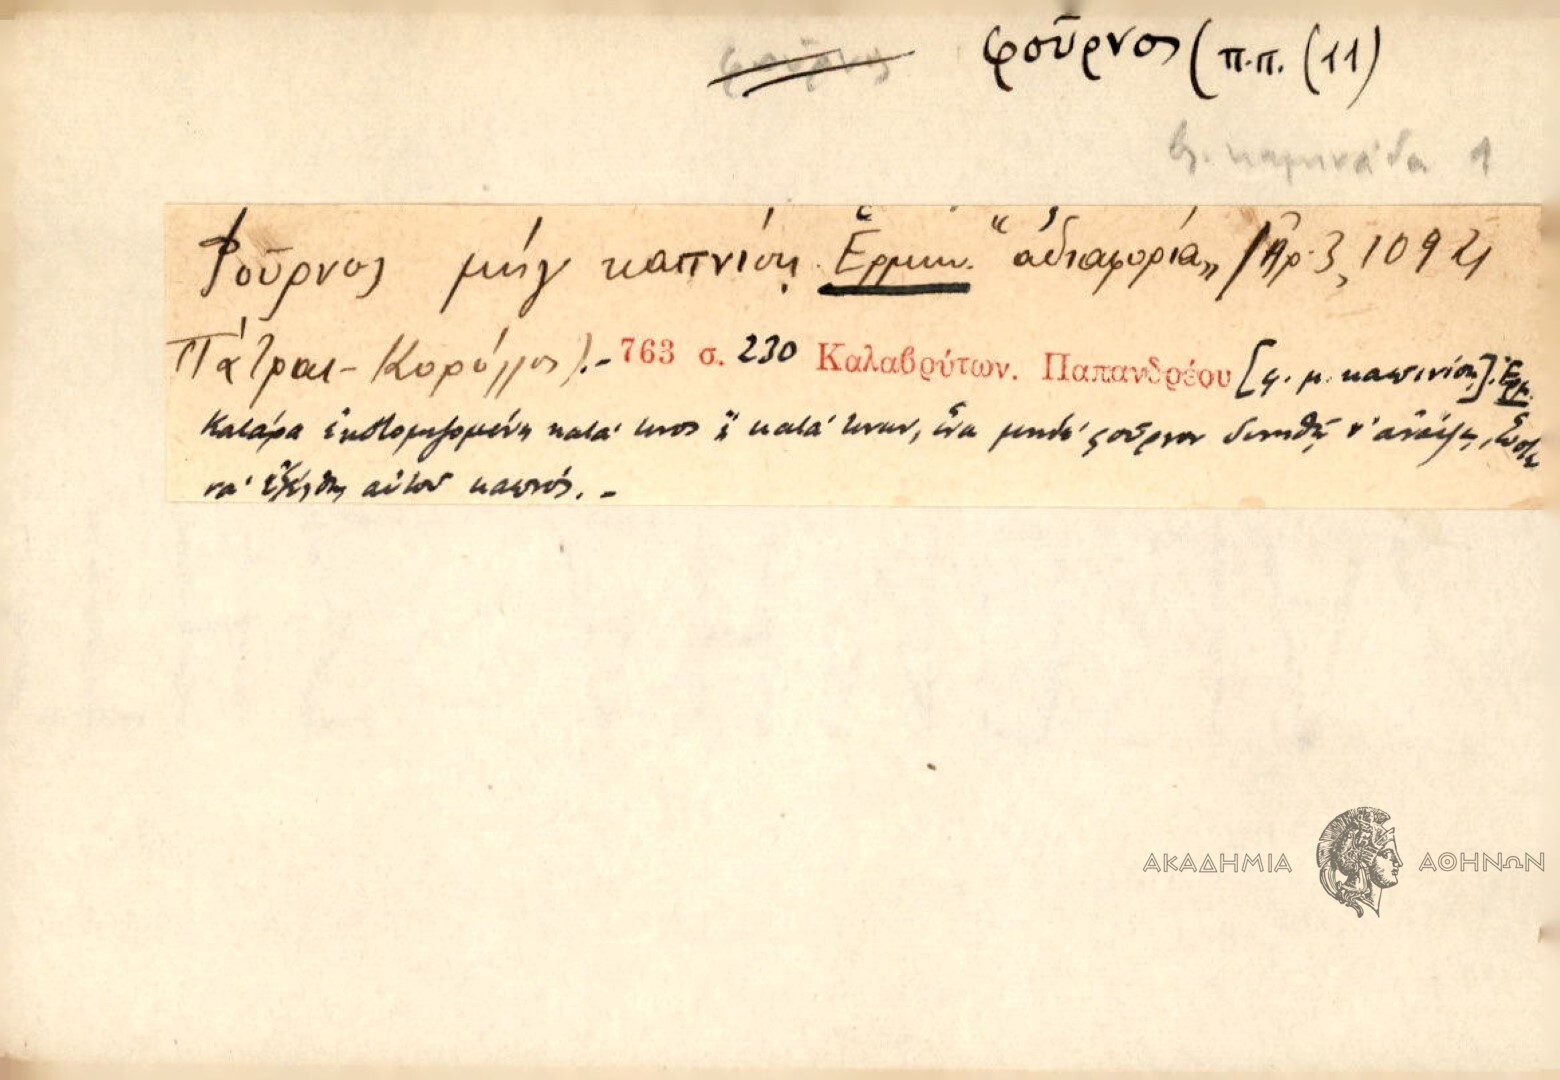 φοῦρνος φοῦρνος (π.π. (11)
βλ. καμινάδα 1
Φοῦρνος μὴν καπνίσῃ. Ἑρμην. "ἀδιαφορία„ (Ἀρ. 3, 109
Πάτραι - Κορύλλος).- 763 σ. 230 Καλαβρύτων. Παπανδρέου [φ. μ. καπνίσῃ]. Ἑρμ.
Κατάρα ἐκστομιζομένη κατά τινος ἢ κατά τινων, ἵνα μηδὲ φοῦρνον δυνηθῇ ν' ἀνάψῃ, ὥστε
νὰ ἐξέλθῃ αὐτοῦ καπνός. -
ΑΚΑΔΗΜΙΑ ΑΘΗΝΩΝ